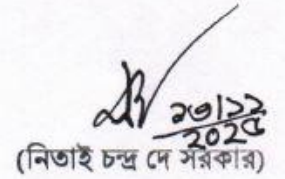 ১৩/১১
২০২৫
(নিতাই চন্দ্র দে সরকার)